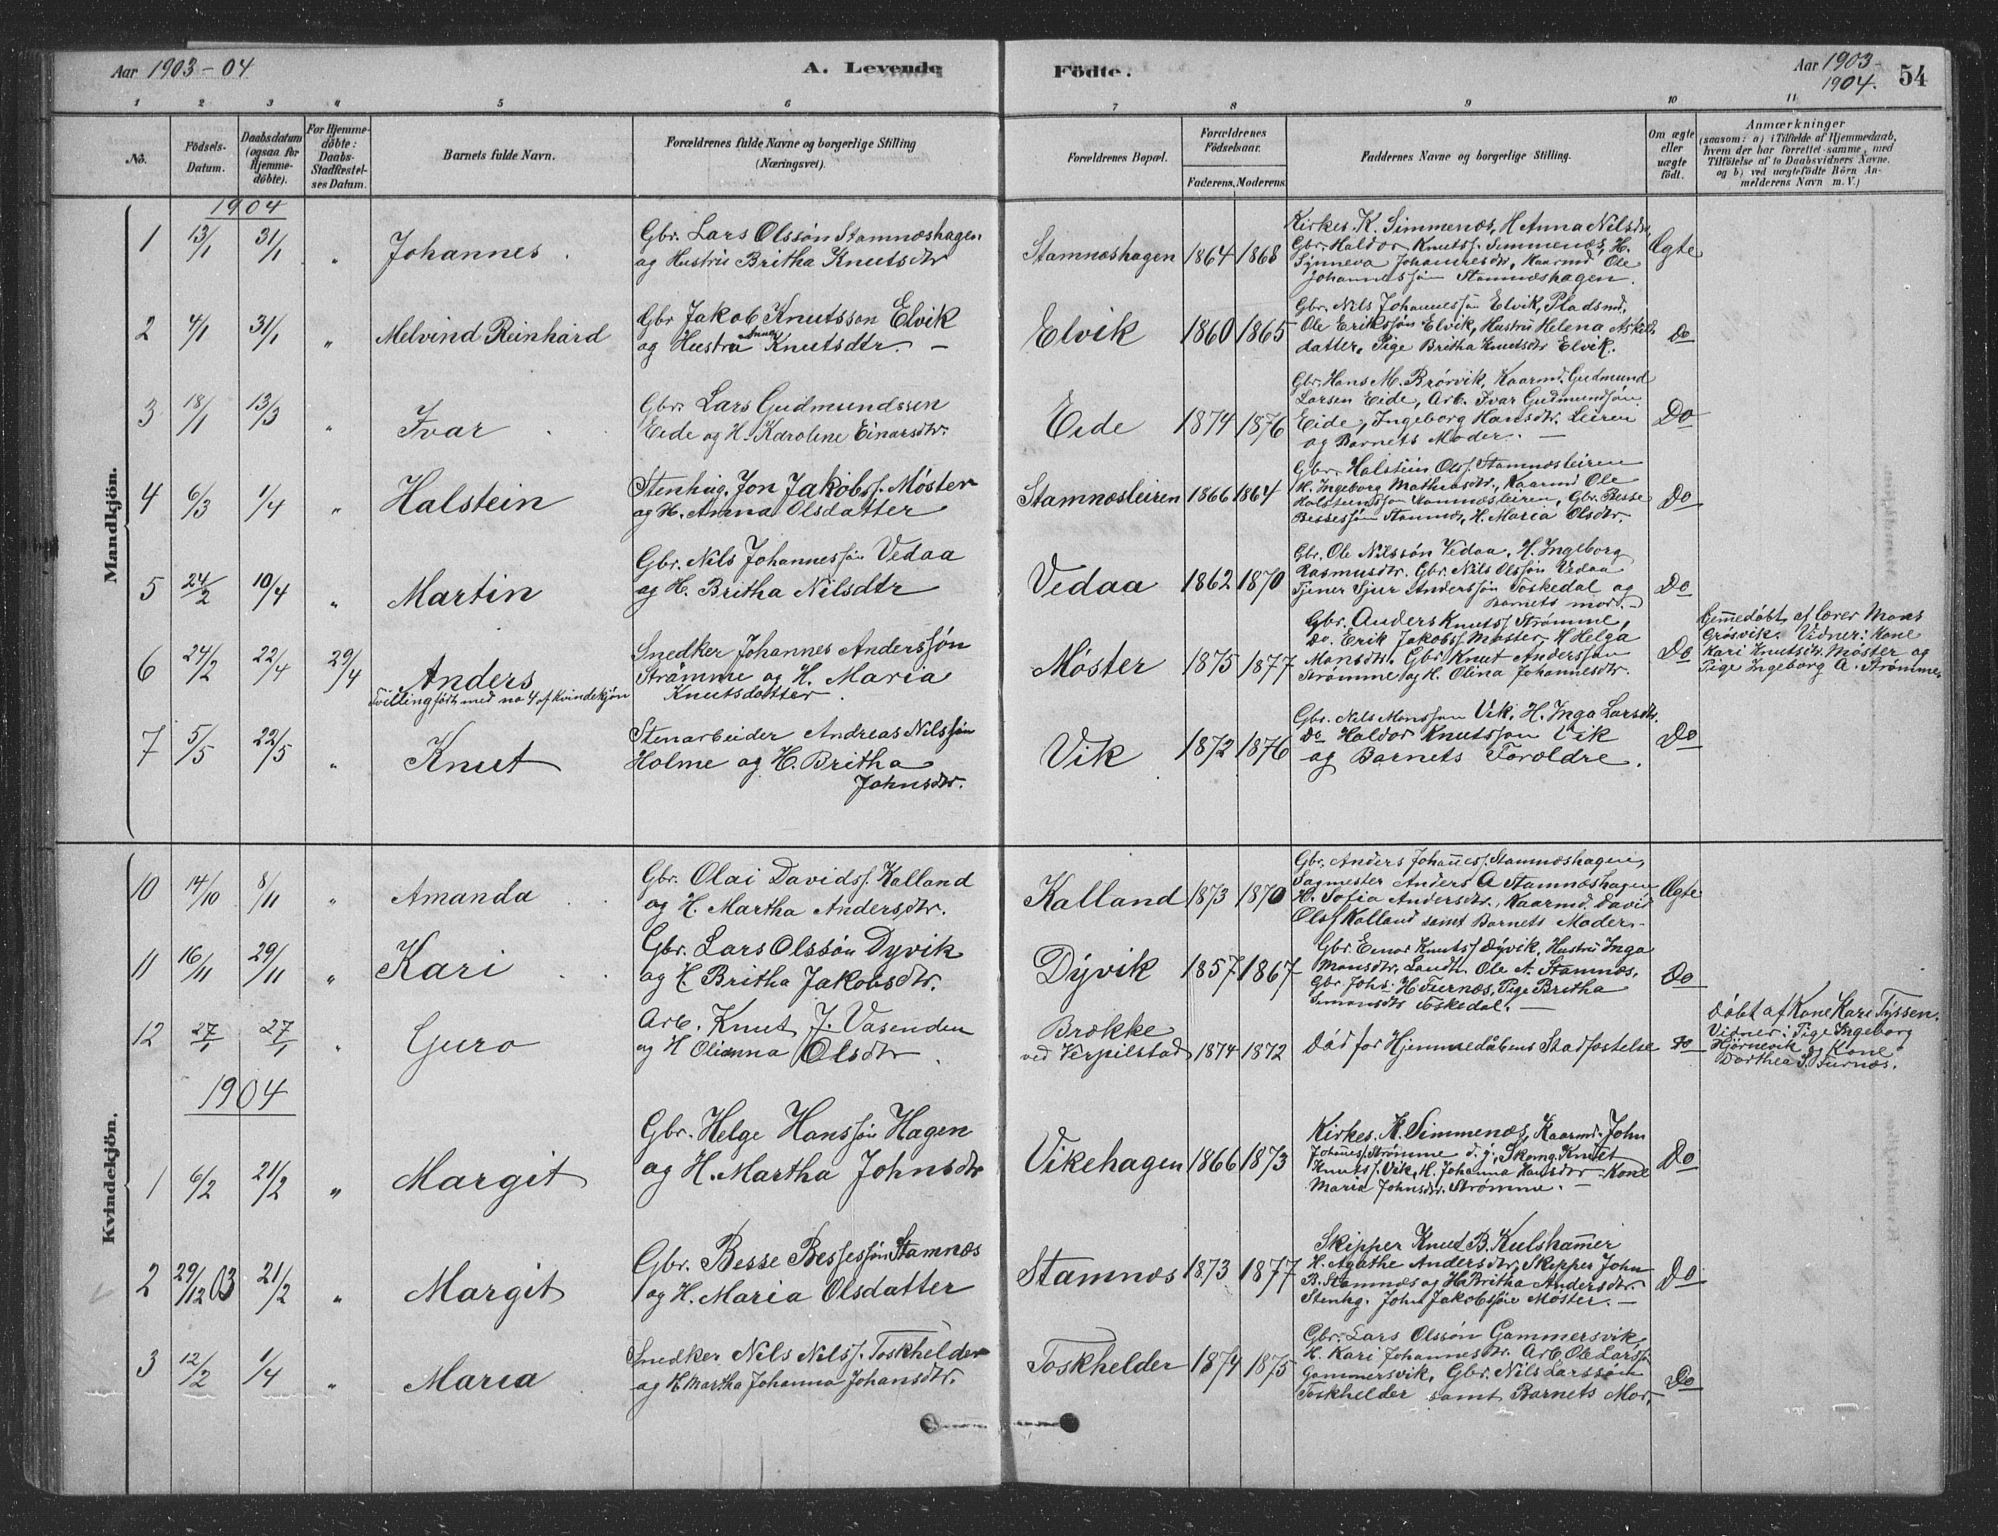 Aar 1903-04
A. Levende
Födte.
Aar 1903-
1904.
54
1 2 3 4 5 6 7 8 9 10 11
No.
Födsels-
Datum.
Daabsdatum
(ogsaa for
Hjemme-
döbte).
For Hjemme-
döbte:
Daabs-
Stadfæstel-
ses Datum.
Barnets fulde Navn.
Forældrenes fulde Navne og borgerlige Stilling
(Næringsvei).
Forældrenes Bopæl.
Forældrenes
Födselsaar.
Faderens.
Moderens.
Faddernes Navne og borgerlige Stilling.
Om ægte
eller
uægte
födt.
Anmærkninger
(saasom: a) i Tilfælde af Hjemmedaab,
hvem der har forrettet samme, med
Tilföielse af to Daabsvidners Navne.
og b) ved uægtefödte Börn An-
melderens Navn m. V.)
Mandkjön.
1904
1 13/1 31/1 " Johannes.
Gbr. Lars Olssøn Stamnæshagen
og Hustru Britha Knutsdtr
Stamnæshagen 1864 1868
Kirkes. K. Simmenæs, H Anna Nilsdtr,
Gbr. Haldor Knutss. Simmenæs, H.
Synneva Johannesdtr, Kaarmd Ole
Johannessøn Stamnæshagen.
Ægte
2 4/1 31/1 " Melvind Reinhard
Gbr Jakob Knutsson Elvik
og Hustru Anna Knutsdtr. —
Elvik 1860 1865
Gbr. Nils Johannessøn Elvik, Pladsmd.
Ole Erikssøn Elvik, Hustru Helena Askels
datter, Pige Britha Knutsdtr Elvik.
Do
3 18/1 13/3 " Ivar
Gbr. Lars Gudmundssen
Eide og H. Karoline Einarsdtr.
Eide 1874 1876
Gbr. Hans M. Brørvik, Kaarmd. Gudmund
Larsen Eide, Arb. Ivar Gudmundsøn
Eide, Ingeborg Hansdtr. Leiren
og Barnets Moder. —
Do
4 6/3 1/4 " Halstein
Stenhug. Jon Jakobss. Møster
og H. Anna Olsdatter
Stamnæsleiren 1866 1864
Gbr. Halstein Olss. Stamnæsleiren
H. Ingeborg Mathiasdtr, Kaarmd Ole
Halsteinssøn Stamnæsleiren, Gbr. Besse
Bessessøn Stamnæs, H. Maria Olsdtr.
Do
5 24/2 10/4 " Martin
Gbr. Nils Johannessøn Vedaa
og H. Britha Nilsdtr
Vedaa 1862 1870
Gbr. Ole Nilssøn Vedaa, H. Ingeborg
Rasmusdtr. Gbr. Nils Olssøn Vedaa
Tjener Sjur Anderssøn Toskedal og
Barnets mor. —
Do
6 24/2 22/4 29/4 Anders
Tvilling født med no 4 af kvindekjøn
Snedker Johannes Anderssøn
Strømme og H. Maria
Knutsdatter.
Møster 1875 1877
Gbr. Anders Knutss. Strømme,
Do. Erik Jakobss. Møster, H Helga
Monsdtr. Gbr. Knut Anderssøn
Strømme og H. Olina Johannesdtr.
Do
Hjemmedøbt af lærer Mons
Grøsvik. Vidner: Kone
Kari Knutsdtr Møster og
Pige Ingeborg A. Strømme
7 5/5 22/5 " Knut
Stenarbeider Andreas Nilssøn
Holme og H. Britha
Johnsdtr.
Vik 1872 1876
Gbr. Nils Monsson Vik, H. Inga Larsdtr.
Do Haldor Knutsson Vik
og Barnets Forældre.
Do
Kvindekjön.
10 14/10 8/11 " Amanda
Gbr. Olai Davidss. Kalland
og H. Martha Andersdtr.
Kalland 1873 1870
Gbr. Anders Johanness. Stamnæshagen,
Sagmester Anders A Stamnæshagen
H. Sofia Andersdtr, Kaarmd. David
Olss Kalland samt Barnets Moder -
Ægte
11 16/11 29/11 " Kari
Gbr. Lars Olssøn Dyvik
og H. Britha Jakobsdtr.
Dyvik 1857 1867
Gbr. Einar Knutss Dyvik, Hustru Inga
Monsdtr, Landh. Ole A. Stamnæs,
Gbr Johs. H Furnæs, Pige Britha
Simonsdtr Toskedal. —
Do
12 27/1 27/1 " Guro
Arb. Knut J. Vasenden
og H Olianna Olsdtr.
Brække
ved Verpilstad 1874 1872
Død før Hjemmedåbens Stadfæstelse
Do
Døbt af Kone Kari Tyssen.
Vidner: Pige Ingeborg
Hjørnevik og Kone
Dorthea J. Furnæs.
1904
1 6/2 21/2 " Margit
Gbr. Helge Hanssøn Hagen
og H. Martha Johnsdtr
Vikehagen 1866 1873
Kirkes. K. Simmenæs, Kaarmd. John
Johness. Strømme d. y., Skomg. Knut
Knutss. Vik, H. Johanna Hansdtr Kone
Maria Johnsdtr. Strømme. —
Do
2 29/12 03 21/2 " Margit
Gbr. Besse Bessessøn Stamnæs
og H. Maria Olsdatter
Stamnæs 1873 1877
Skipper Knut B. Kulshammer
H. Agathe Andersdtr, Skipper John
B. Stamnæs og H. Britha Andersdtr.
Stenhg. John Jakobssøn Møster. —
Do
3 12/2 1/4 " Maria
Snedker Nils Nilss. Toskhelder
og H. Martha Johanna Johansdtr.
Toskhelder 1874 1875
Gbr. Lars Olssøn Gammersvik,
H. Kari Johannesdtr. Arb Ole Larssøn
Gammersvik, Gbr. Nils Larssøn
Toskhelder samt Barnets Mor.
Do